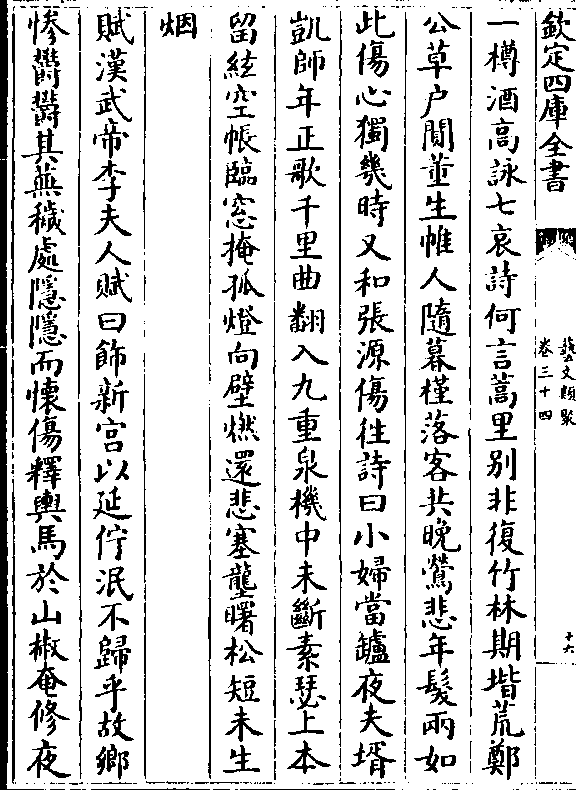 欽定四庫全書
藝文類聚
卷三十四
十六
一樽酒高詠七哀詩何言蒿里别非復竹林期堦荒鄭
公草户閴董生帷人隨暮槿落客共晚鶯悲年髮兩如
此傷心獨幾時又和張源傷往詩曰小婦當鑪夜夫壻
凱師年正歌千里曲翻入九重泉機中未斷素瑟上本
留絃空帳臨窓掩孤燈向壁燃還悲塞壟曙松短未生
烟
賦漢武帝李夫人賦曰飾新宫以延佇泯不歸乎故鄉
惨欝欝其蕪穢處隱隱而懷傷釋輿馬於山椒奄修夜